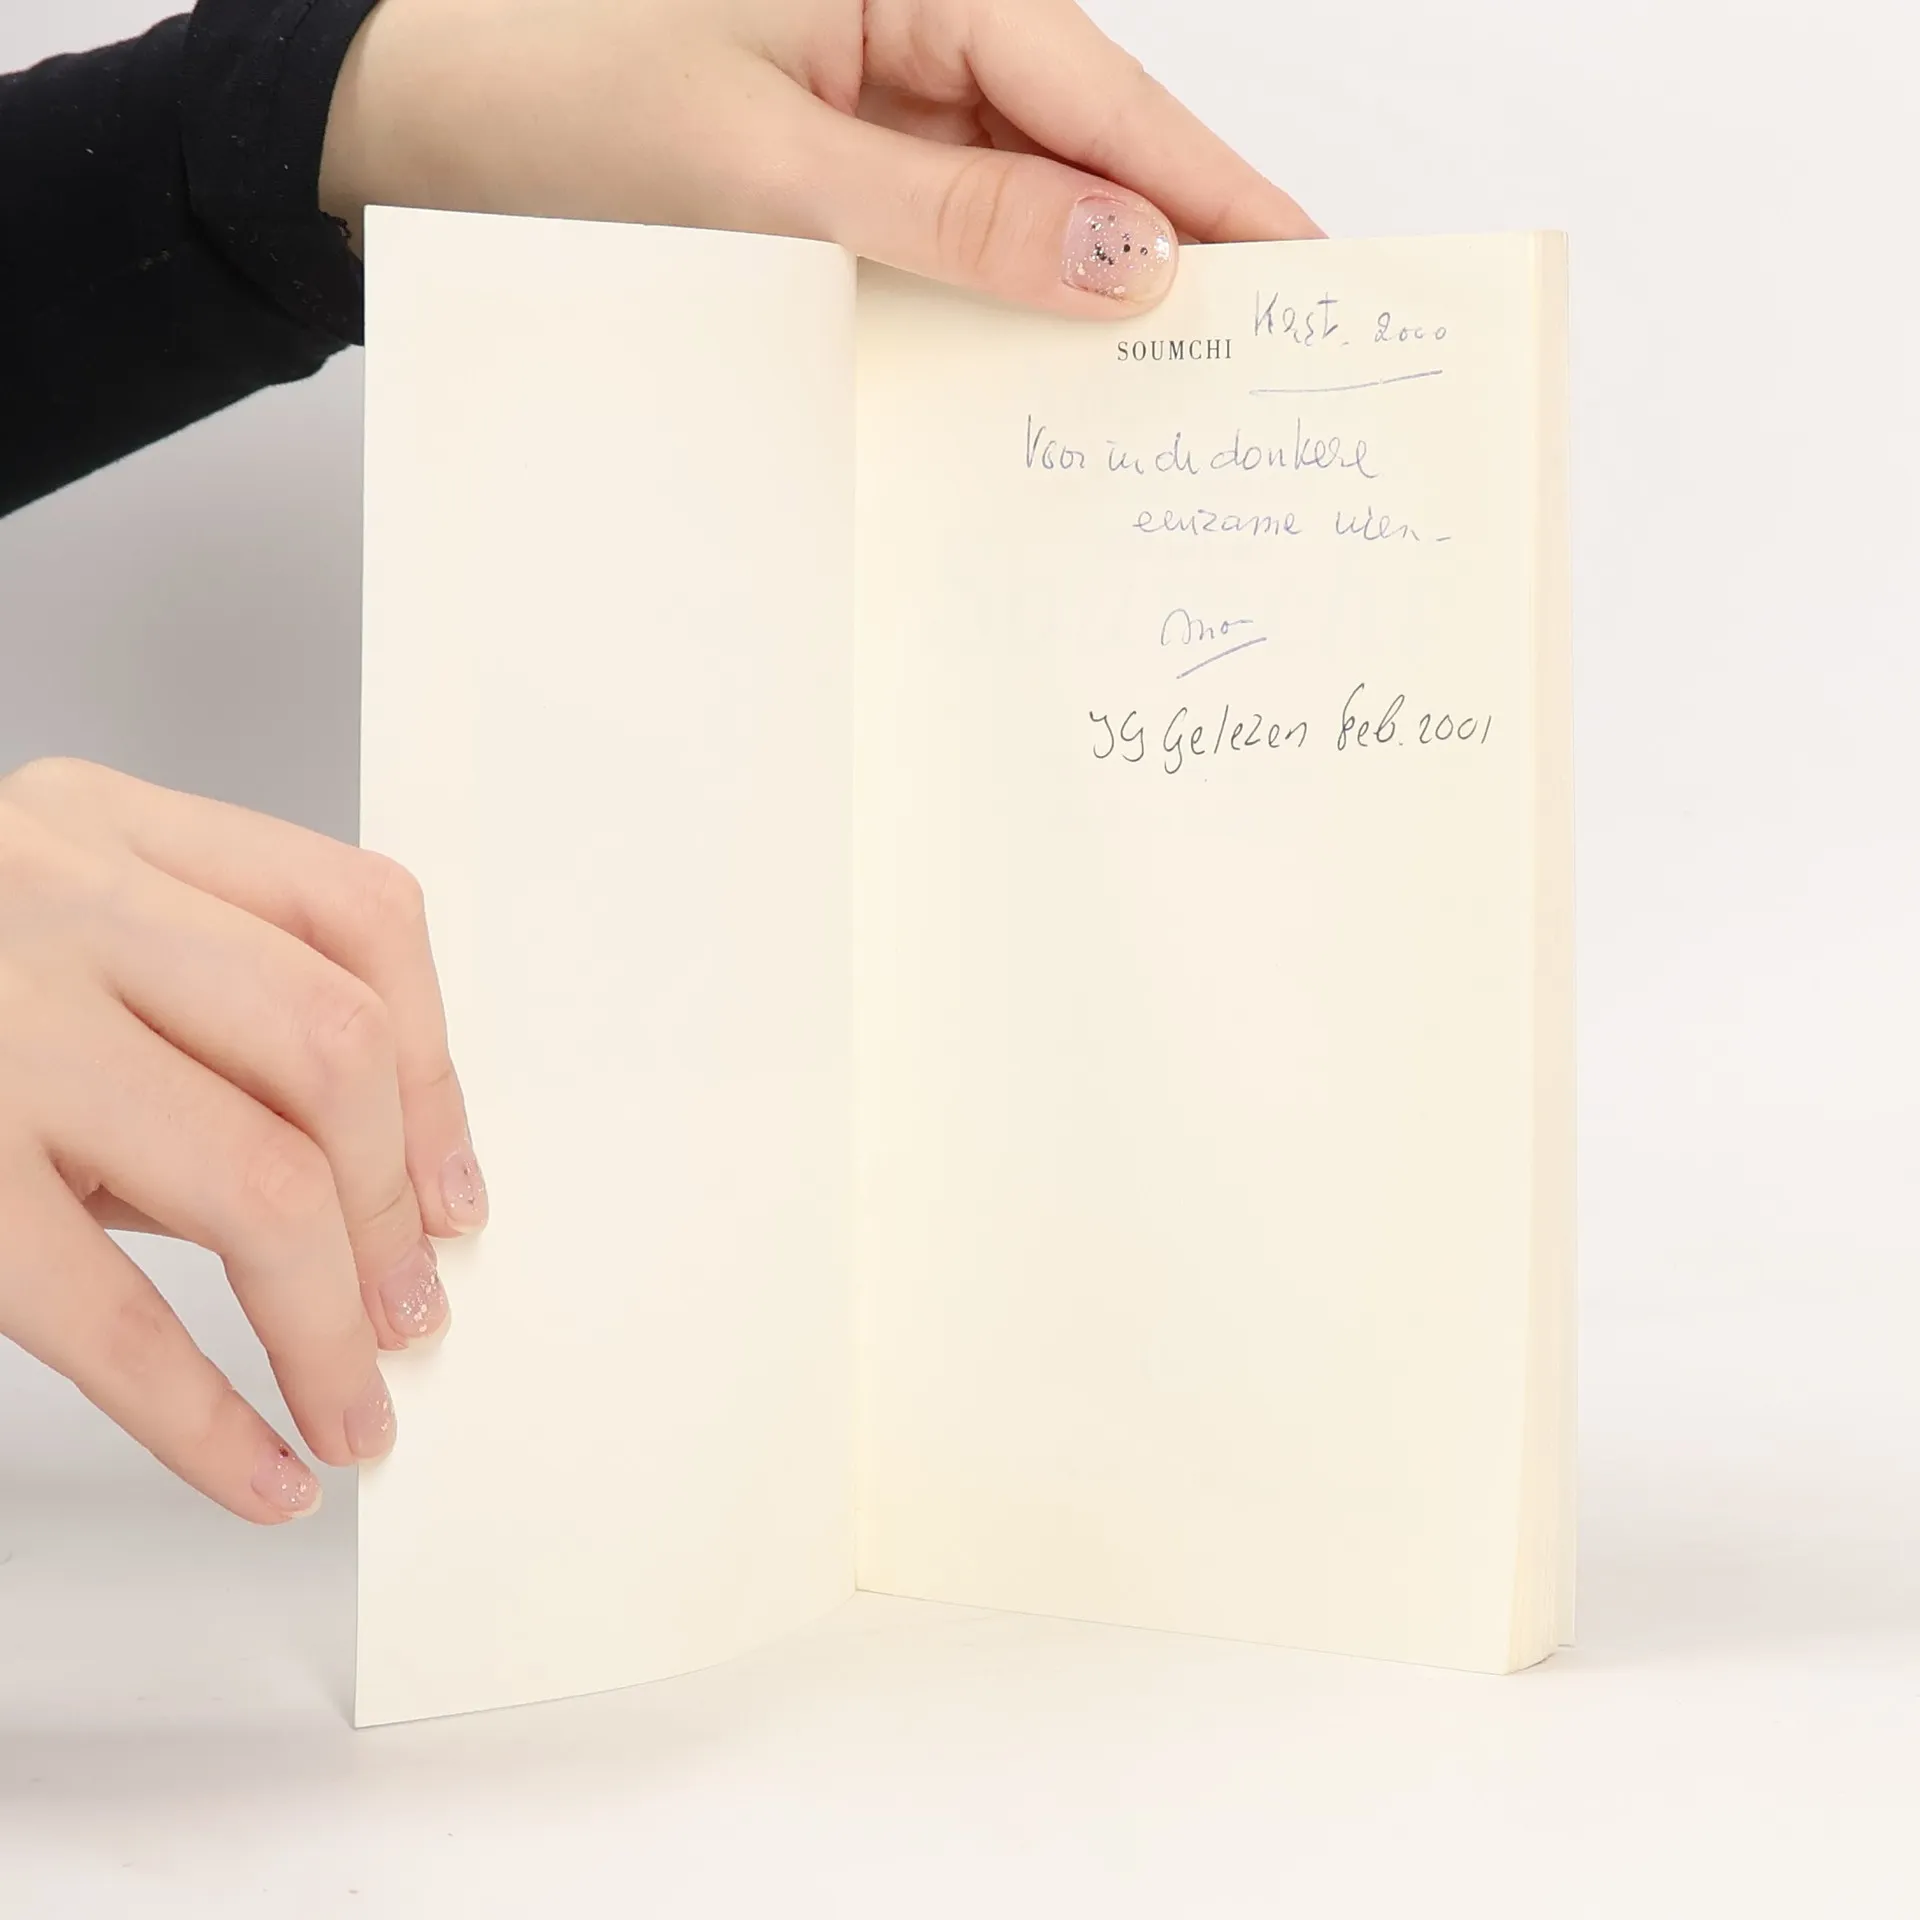 SOUMCHI Kerst. 2000
Voor in de donkere
eenzame uren -
JG Gelezen feb. 2001